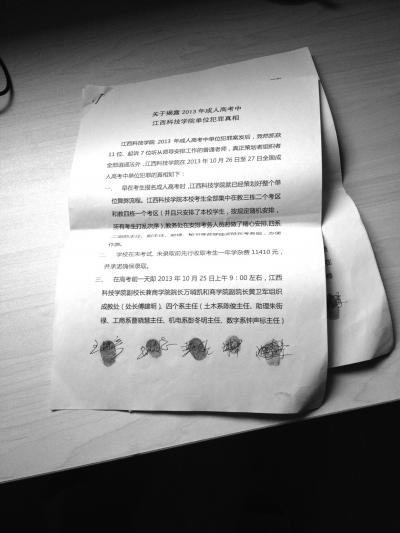 关于揭露 2013 年成人高考中
江西科技学院单位犯罪真相
江西科技学院 2013 年成人高考中单位犯罪案发后,竟然抓获
11 位、起诉 7 位听从领导安排工作的普通老师,真正策划者组织者
全部逍遥法外,江西科技学院在 2013 年 10 月 26 日至 27 日全国成
人高考中单位犯罪的真相如下:
一、 早在考生报名成人高考时,江西科技学院就已经策划好整个单
位舞弊流程。江西科技学院本校考生全部集中在教三栋二个考区
和教四栋一个考区(并且只安排了本校学生,按规定随机安排,
所有考生打乱次序),教务处在安排考务人员时做了精心安排,四系
作弊。
二、 学校在未考试、未录取前先行收取考生一年学杂费 11410 元,
并承诺确保录取。
三、 在高考前一天即 2013 年 10 月 25 日上午 9:00 左右,江西
科技学院副校长兼商学院院长万晓凯和商学院副院长黄卫军组织
成教处(处长傅建明)、四个系主任(土木系陈俊主任、助理朱衔
禄、工商系曹晓慧主任、机电系彭冬明主任、数字系钟声标主任)